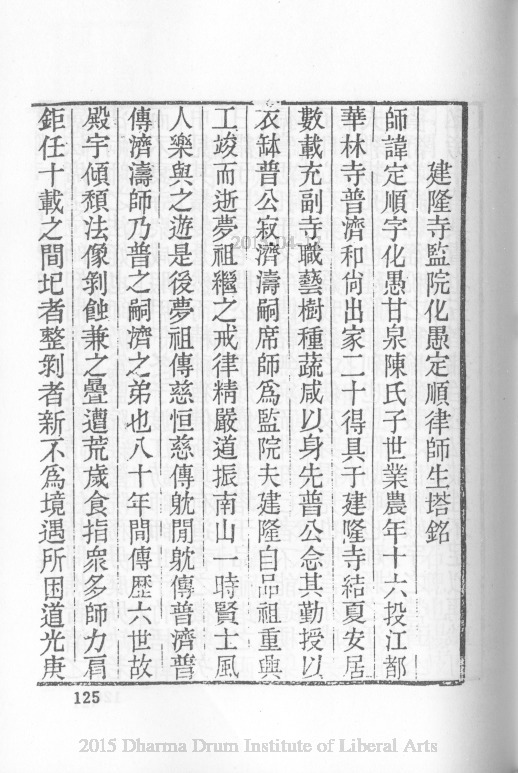 建隆寺監院化愚定順律師生塔銘
師諱定順字化愚甘泉陳氏子世業農年十六投江都
華林寺普濟和尙出家二十得具于建隆寺結夏安居
數載充副寺職藝樹種蔬咸以身先普公念其勤授以
衣缽普公寂濟濤嗣席師爲監院夫建隆自品祖重興
工竣而逝夢祖繼之戒律精嚴道振南山一時賢士風
人樂與之遊是後夢祖傳慈恒慈傳躭閒躭傳普濟普
傳濟濤師乃普之嗣濟之弟也八十年間傳歷六世故
殿宇傾頹法像剝蝕兼之疊遭荒歲食指衆多師力肩
鉅任十載之間圮者整剝者新不爲境遇所困道光庚
125
2015 Dharma Drum Institute of Liberal Arts